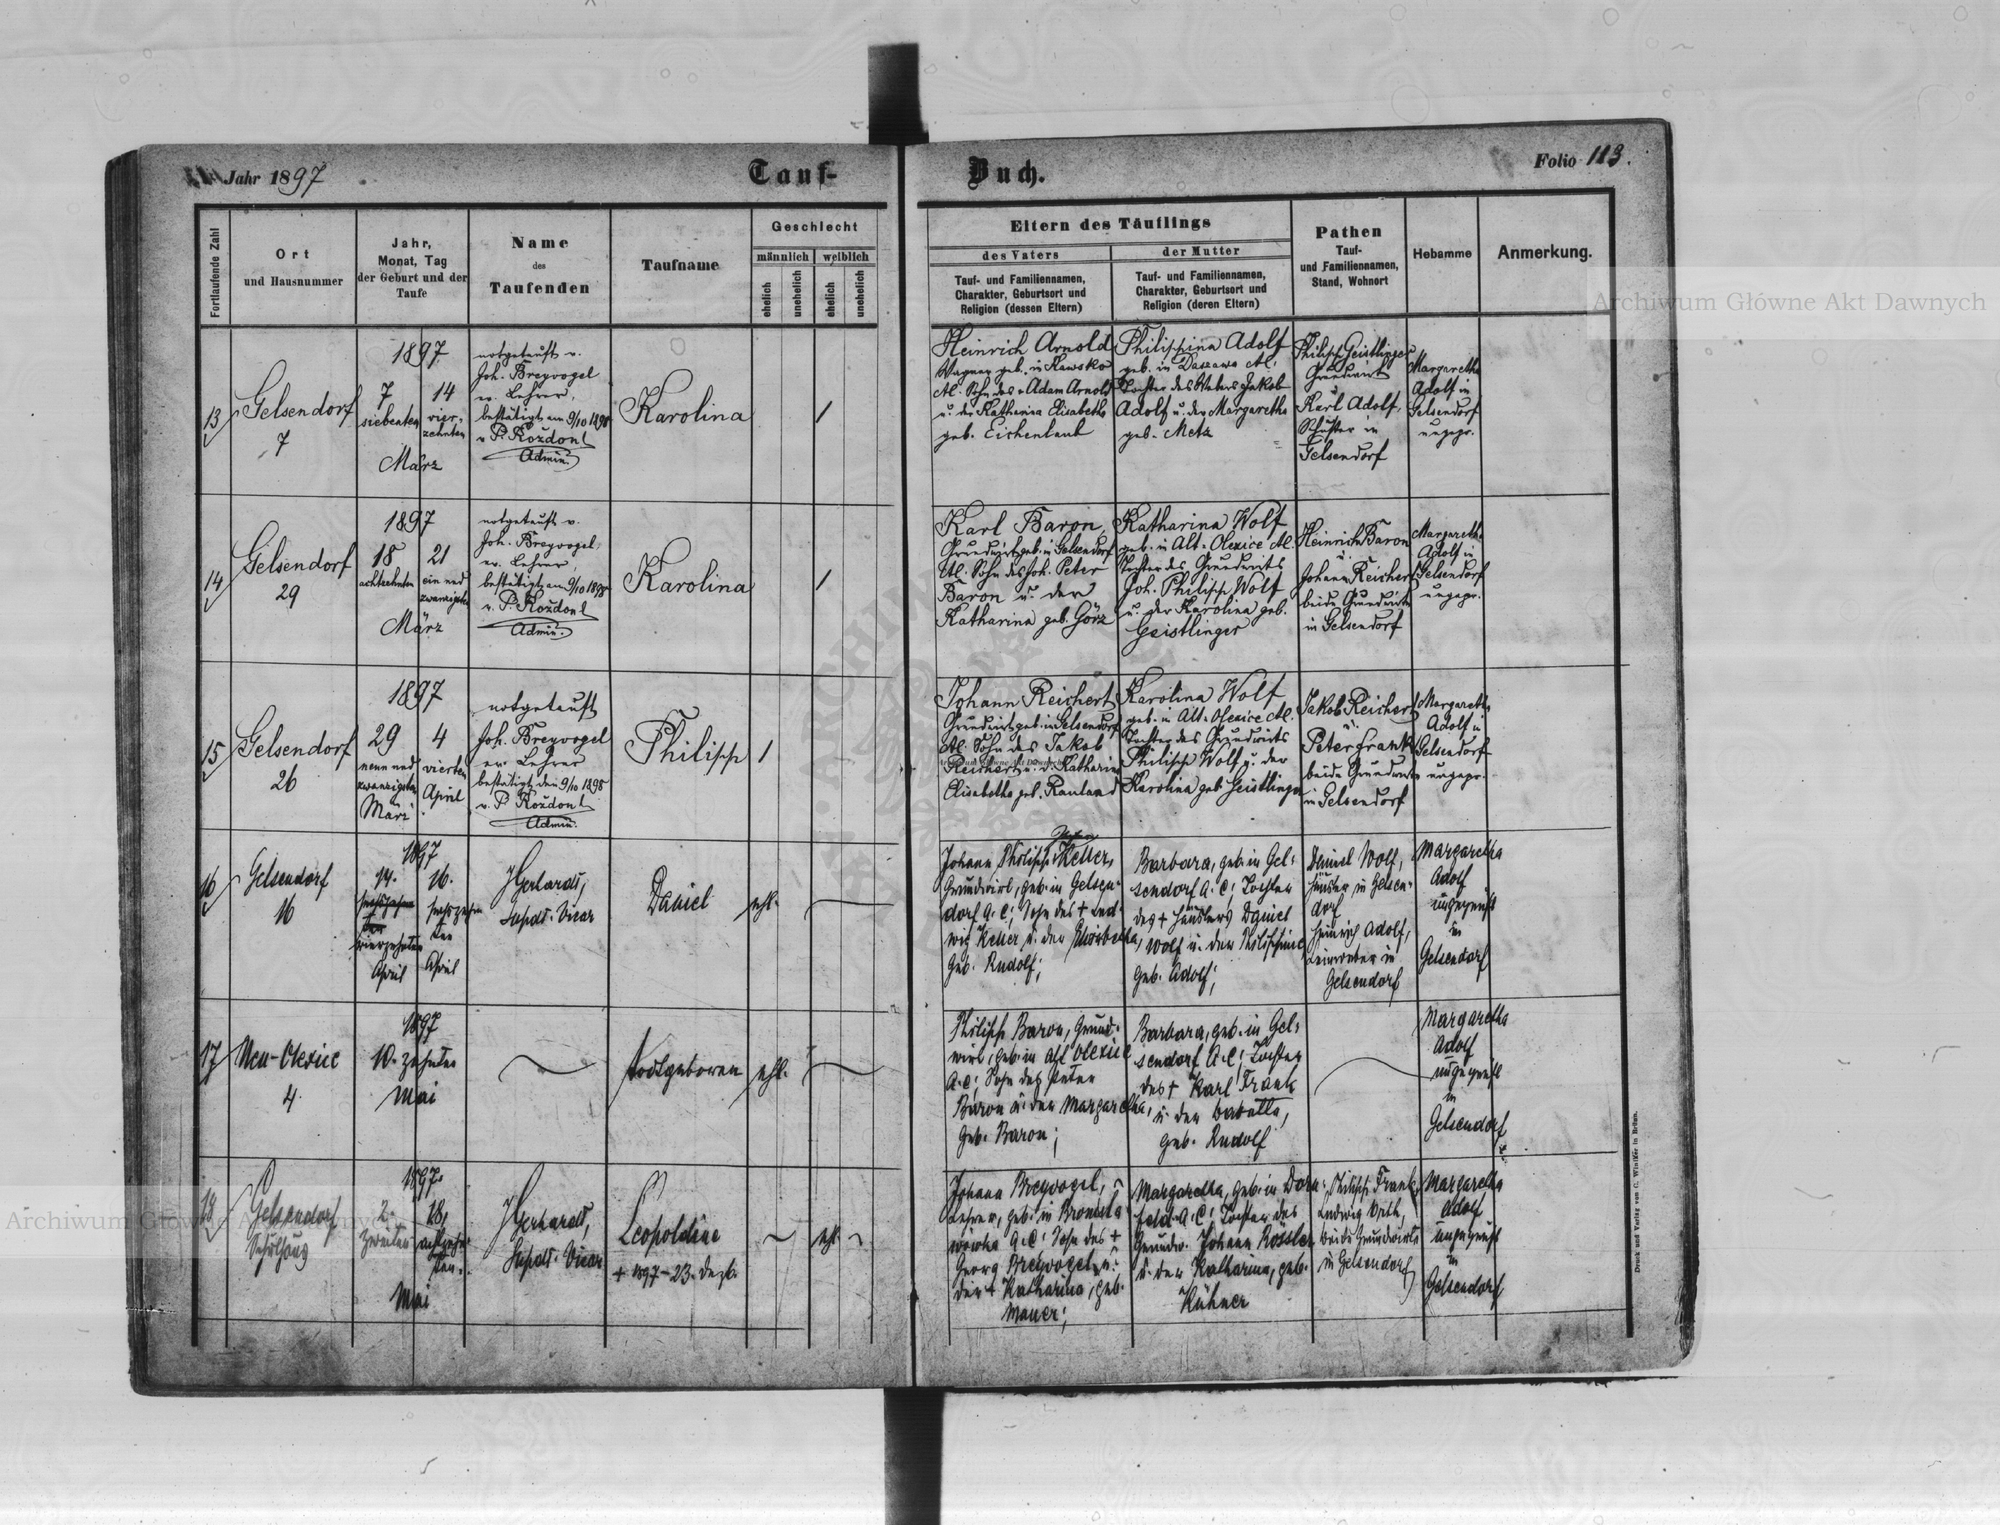 Jahr 1897
Tauf-
Buch.
Folio 113.
Fortlaufende Zahl
Ort
und Hausnummer
Jahr,
Monat, Tag
der Geburt und der
Taufe
Name
des
Taufenden
Taufname
Geschlecht
männlich
weiblich
ehelich
unehelich
ehelich
unehelich
Eltern des Täuflings
des Vaters
Tauf- und Familiennamen,
Charakter, Geburtsort und
Religion (dessen Eltern)
der Mutter
Tauf- und Familiennamen,
Charakter, Geburtsort und
Religion (deren Eltern)
Pathen
Tauf-
und Familiennamen,
Stand, Wohnort
Hebamme
Anmerkung.
13
Gelsendorf
7
1897
7
siebenten
14
vier-
zehnten
März
notgetauft v.
Joh. Breyvogel
ev. Lehrer,
bestätigt am 9/10 1898
v. P. Rozdon
Admin.
Karolina
/
Heinrich Arnold
Wagner geb. in Kawsko
AC. Sohn des Adam Arnold
u. der Katharina Elisabetha
geb. Eichenlaub
Philippina Adolf
geb. in Daszawa AC.
Tochter des Peters Jakob
Adolf u. der Margaretha
geb. Metz
Philipp Geistlinger
Grundwirt
u.
Karl Adolf,
Schuster in
Gelsendorf
Margaretha
Adolf in
Gelsendorf
ungepr.
14
Gelsendorf
29
1897
18
achtzehnten
21
ein und
zwanzigsten
März
notgetauft v.
Joh. Breyvogel
ev. Lehrer,
bestätigt am 9/10 1898
v. P. Rozdon
Admin.
Karolina
/
Karl Baron
Grundwirt geb. in Gelsendorf
AC. Sohn des Joh. Peter
Baron u. der
Katharina geb. Görz
Katharina Wolf
geb. in Alt-Olexice AC.
Tochter des Grundwirts
Joh. Philipp Wolf
u. der Karolina geb.
Geistlinger
Heinrich Baron
u.
Johann Reichert
beide Grundwirte
in Gelsendorf
Margaretha
Adolf in
Gelsendorf
ungepr.
15
Gelsendorf
26
1897
29
neun und
zwanzigsten
März
4
vierten
April
notgetauft
Joh. Breyvogel
ev. Lehrer
bestätigt den 9/10 1898
v. P. Rozdon
Admin.
Philipp
/
Johann Reichert
Grundwirt geb. in Gelsendorf
AC. Sohn des Jakob
Reichert u. d. Katharina
Elisabetha geb. Rauland
Karolina Wolf
geb. in Alt-Olexice AC.
Tochter des Grundwirts
Philipp Wolf u. der
Karolina geb. Geistlinger
Jakob Reichert
u.
Peter Frank
beide Grundwirte
in Gelsendorf
Margaretha
Adolf in
Gelsendorf
ungepr.
16
Gelsendorf
16
1897
14.
vierzehnten
April
16.
sechszehn
ten
April
Gerhardt,
Supdt. Vicar
Daniel
ehl.
Johann Philipp Keller,
Grundwirt, geb. in Gelsen-
dorf A. C; Sohn des + Lud-
wig Keller u. der Elisabetha,
geb. Rudolf;
Barbara, geb. in Gel-
sendorf A. C; Tochter
des + Häuslers Daniel
Wolf u. der Philippine
geb. Adolf;
Daniel Wolf,
Häusler in Gelsen-
dorf
Heinrich Adolf,
Leinweber in
Gelsendorf
Margaretha
Adolf
ungeprüft
in
Gelsendorf
17
Neu-Olexice
4.
1897
10. zehnten
Mai
todtgeboren
ehl.
Philipp Baron, Grund-
wirt, geb. in Alt Olexice
A. C; Sohn des Peter
Baron u. der Margaretha,
geb. Baron;
Barbara, geb. in Gel-
sendorf A. C; Tochter
des + Karl Frank
u. der Babetta,
geb. Rudolf
Margaretha
Adolf
ungeprüft
in
Gelsendorf
18
Gelsendorf
Schulhaus
1897.
2.
zweiten
18.
achtzehn
ten.
Mai
Gerhardt,
Supdt. Vicar
Leopoldine
+ 1897 - 23. Dezb.
ehl.
Johann Breyvogel,
Lehrer, geb. in Bronisla-
wówka A. C; Sohn des +
Georg Breyvogel u.
der + Katharina, geb.
Mauer;
Margaretha, geb. in Dorn-
feld A. C; Tochter des
Grundw. Johann Rössler
u. der Katharina, geb.
Kühner
Philipp Frank,
Ludwig Orth,
beide Grundwirte
in Gelsendorf
Margaretha
Adolf
ungeprüft
in
Gelsendorf
Druck und Verlag von C. Winiker in Brünn.
Archiwum Główne Akt Dawnych
Archiwum Główne Akt Dawnych